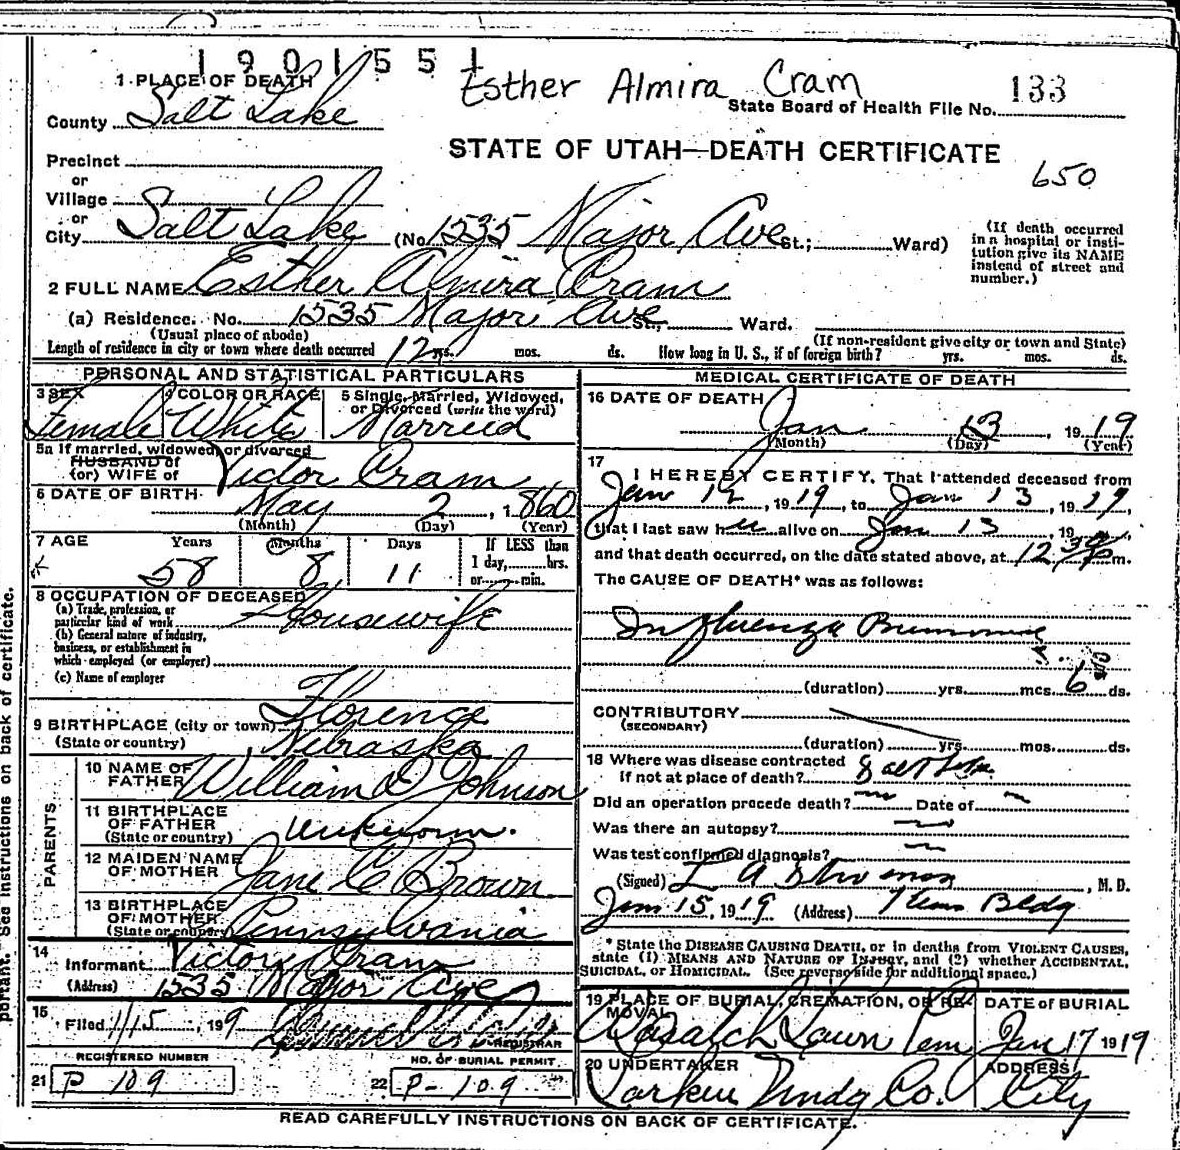 1901551
Esther Almira Cram
1 PLACE OF DEATH
State Board of Health File No. 133
County Salt Lake
STATE OF UTAH—DEATH CERTIFICATE
650
Precinct
or
Village
or
City Salt Lake (No. 1535 Major Ave St.; Ward)
(If death occurred in a hospital or insti-
tution give its NAME
instead of street and
number.)
2 FULL NAME Esther Almira Cram
(a) Residence. No. 1535 Major Ave St., Ward.
(Usual place of abode) (If non-resident give city or town and State)
Length of residence in city or town where death occurred 12 yrs. mos. ds. How long in U. S., if of foreign birth? yrs. mos. ds.
PERSONAL AND STATISTICAL PARTICULARS
3 SEX Female
4 COLOR OR RACE White
5 Single, Married, Widowed,
or Divorced (write the word)
Married
5a If married, widowed, or divorced
HUSBAND of
(or) WIFE of Victor Cram
6 DATE OF BIRTH
May 2, 1860
(Month) (Day) (Year)
7 AGE Years Months Days If LESS than
1 day, hrs.
or min.
58 8 11
8 OCCUPATION OF DECEASED
(a) Trade, profession, or
particular kind of work Housewife
(b) General nature of industry,
business, or establishment in
which employed (or employer)
(c) Name of employer
9 BIRTHPLACE (city or town) Florence
(State or country) Nebraska
PARENTS
10 NAME OF
FATHER William D Johnson
11 BIRTHPLACE
OF FATHER
(State or country) unknown.
12 MAIDEN NAME
OF MOTHER Jane C Brown
13 BIRTHPLACE
OF MOTHER
(State or country) Pennsylvania
14
Informant Victor Cram
(Address) 1535 Major Ave
15
Filed 1/15, 1919
REGISTRAR
REGISTERED NUMBER
21 P 109
NO. OF BURIAL PERMIT
22 P-109
MEDICAL CERTIFICATE OF DEATH
16 DATE OF DEATH
Jan 13, 1919
(Month) (Day) (Year)
17
I HEREBY CERTIFY, That I attended deceased from
Jan 12, 1919, to Jan 13, 1919,
that I last saw her alive on Jan 13 19
and that death occurred, on the date stated above, at 12 30 m.
The CAUSE OF DEATH* was as follows:
Influenza Pneumonia
(duration) yrs. mos. 6 ds.
CONTRIBUTORY
(SECONDARY)
(duration) yrs. mos. ds.
18 Where was disease contracted
if not at place of death?
Did an operation precede death? Date of
Was there an autopsy?
Was test confirmed diagnosis?
(Signed) , M. D.
Jan 15, 1919 (Address) Bldg
* State the DISEASE CAUSING DEATH, or in deaths from VIOLENT CAUSES,
state (1) MEANS AND NATURE OF INJURY, and (2) whether ACCIDENTAL,
SUICIDAL, or HOMICIDAL. (See reverse side for additional space.)
19 PLACE OF BURIAL, CREMATION, OR RE-
MOVAL
Wasatch Lawn Cem
DATE of BURIAL
Jan 17 1919
20 UNDERTAKER
Larkin Undg Co.
ADDRESS
City
READ CAREFULLY INSTRUCTIONS ON BACK OF CERTIFICATE.
portant. See instructions on back of certificate.